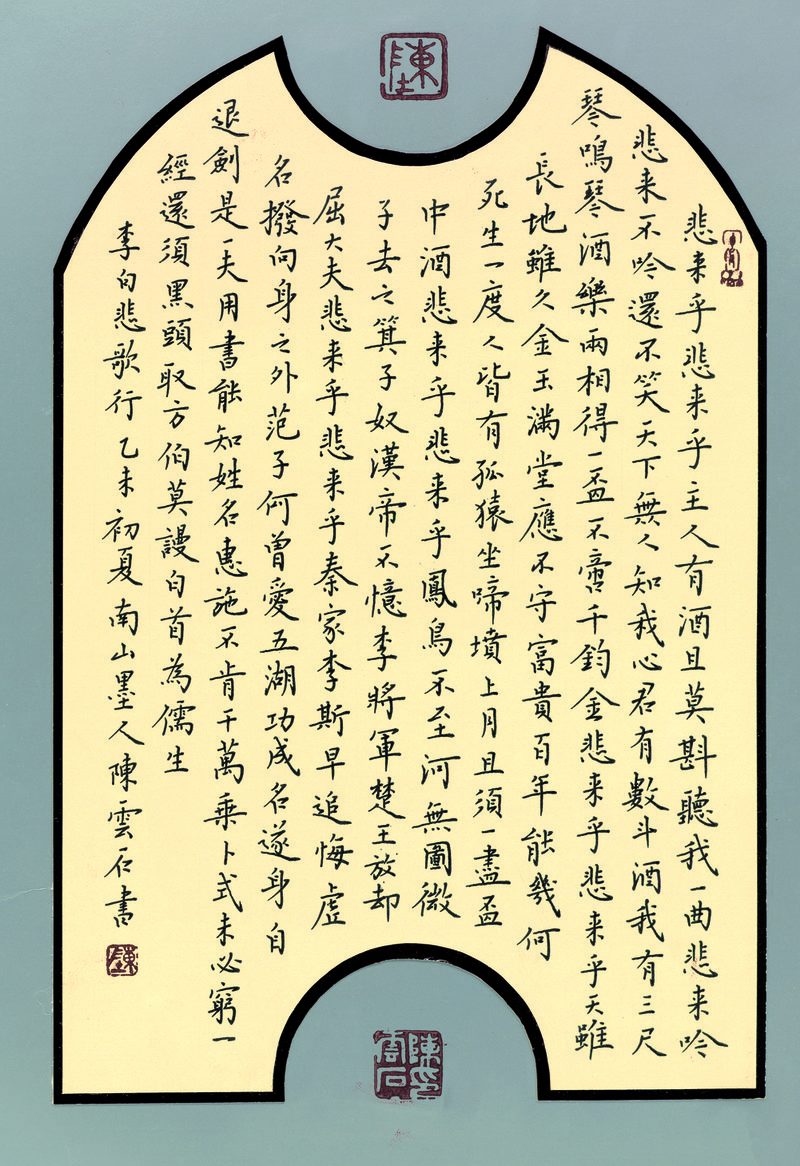 陳
悲来乎悲来乎主人有酒且莫斟聽我一曲悲来吟
悲来不吟還不笑天下無人知我心君有數斗酒我有三尺
琴鳴琴酒樂兩相得一盃不啻千鈞金悲来乎悲来乎天雖
長地雖久金玉滿堂應不守富貴百年能幾何
死生一度人皆有孤猿坐啼墳上月且須一盡盃
中酒悲来乎悲来乎鳳鳥不至河無圖微
子去之箕子奴漢帝不憶李將軍楚王放却
屈大夫悲来乎悲来乎秦家李斯早追悔虛
名撥向身之外范子何曾愛五湖功成名遂身自
退劍是一夫用書能知姓名惠施不肯干萬乘卜式未必窮一
經還須黑頭取方伯莫謾白首為儒生
李白悲歌行乙未初夏南山墨人陳雲石書
陳
陳印雲石